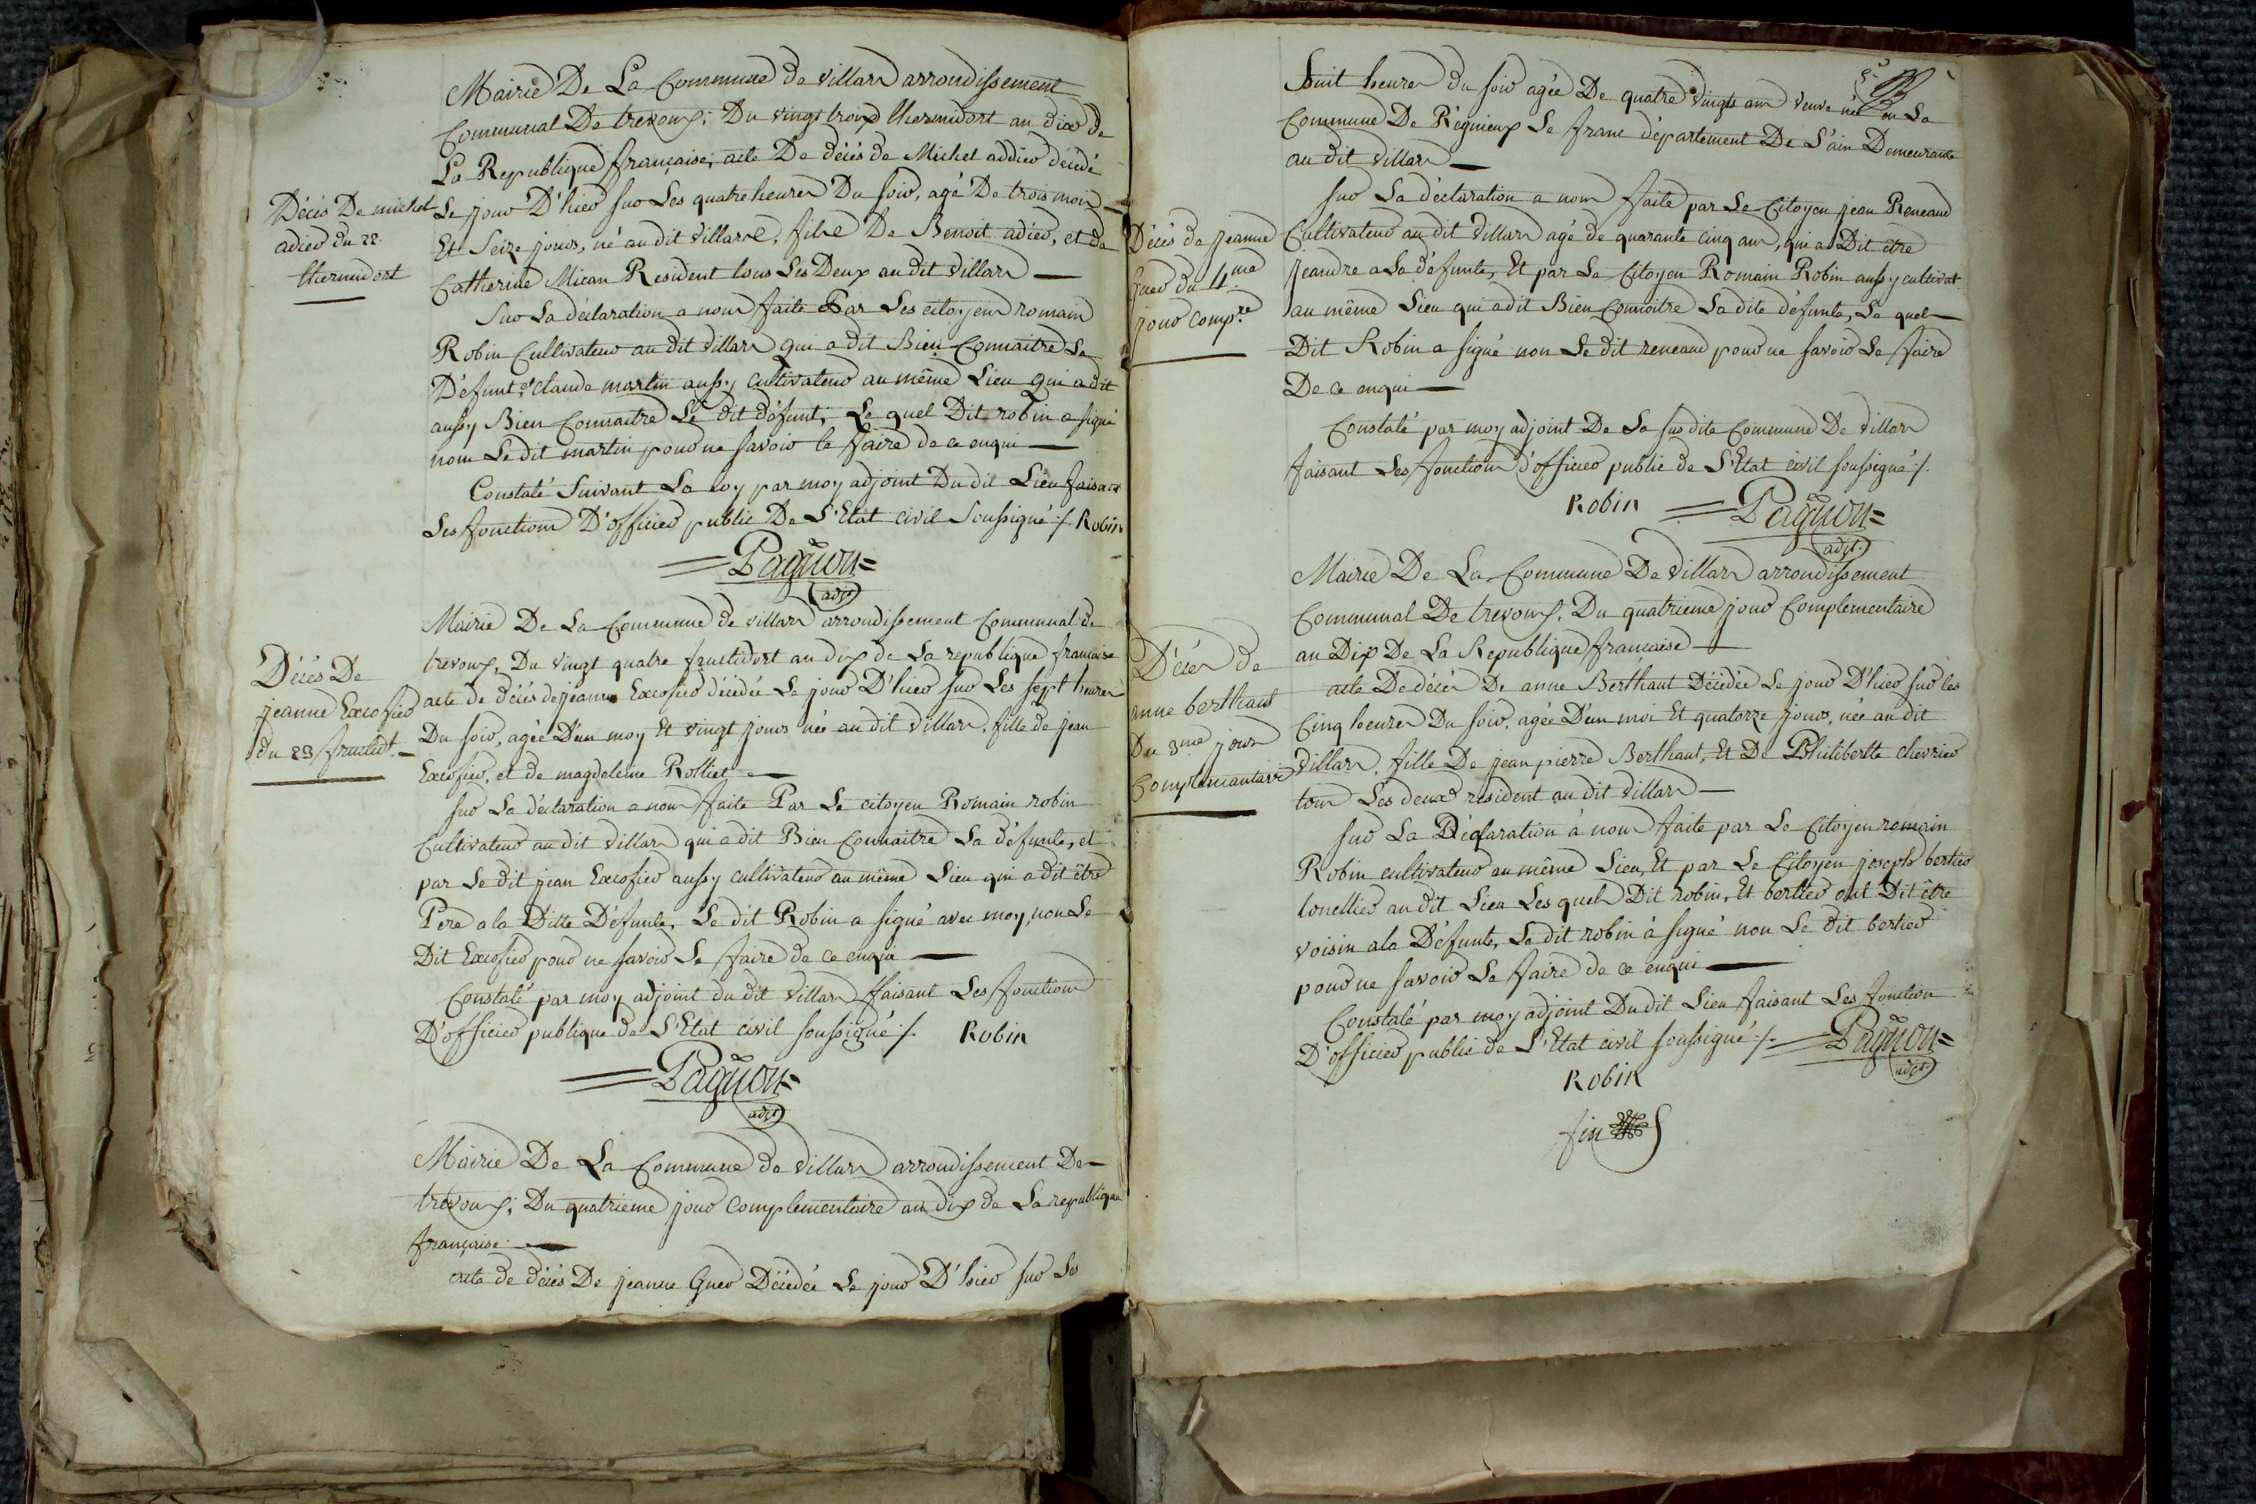 Mairie De La Commune de villars arrondissement
Communal De trevoux; Du vingt trois thermidort an dix de
La Republique française, acte De décés de Michel addier décédé
Décés De michel
adier du 22
thermidort
Le jour D'hier sur Les quatre heures Du soir, agé De trois mois
Et Seize jours, né au dit villars, fils De Benoit adier, et de
Catherine Mican Resident tous Les Deux au dit villars
Sur La déclaration a nous faite Par Les citoyens romain
Robin Cultivateur au dit villars qui a dit Bien Connaitre Le
Défunt, et claude martin aussy cultivateur au même Lieu qui a dit
aussy Bien Connaitre Le dit défunt; Le quel Dit robin a signé
non Le dit martin pour ne savoir le faire de ce enqui
Constaté Suivant La loy par moy adjoint Du dit Lieu faisant
Les fonctions D'officier public De L'Etat civil Soussigné ./. Robin
Pagnon
adjt
Mairie De La Commune de villars arrondissement Communal de
trevoux, Du vingt quatre frustidort an dix de La republique francaise
Décés De
jeanne Excofier
du 23 fructidt.
acte de décés de jeanne Excofier décédée Le jour D'hier sur Les sept heures
Du soir, agée D'un moy Et vingt jours née au dit villars, fille de jean
Excofier, et de magdeleine Rolliet
sur La déclaration a nous faite Par Le citoyen Romain robin
Cultivateur au dit villars qui a dit Bien Connaitre La défunte, et
par Le dit jean Excofier aussy cultivateur au même Lieu qui a dit être
Pere a la Ditte Défunte, Le dit Robin a signé avec moy, non Le
Dit Excofier pour ne savoir Le faire de ce enqui
Constaté par moy adjoint du dit villars faisant Les fonctions
D'officier publique de L'Etat civil soussigné ./. Robin
Pagnon
adjt
Mairie De La Commune de villars arrondissement De
trevoux; Du quatrieme jour Complementaire an dix de La republique
française.
acte de décés De jeanne Guer Décédée Le jour D'hier sur Les
huit heures du soir agée De quatre vingts ans veuve née en La
Commune De Rignieux Le franc département De L'ain Demeurante
au dit villars
Décés de jeanne
Guer du 4.me
jour Comp.re
sur La déclaration a nous faite par Le Citoyen jean Reneaud
Cultivateur au dit villars agé de quarante cinq ans, qui a Dit être
jeandre a La défunte, Et par Le Citoyen Romain Robin aussy cultivat
au même Lieu qui a dit Bien Connoitre La dite défunte, Le quel
Dit Robin a signé non Le dit reneaud pour ne savoir Le faire
De ce enqui
Constaté par moy adjoint De La susdite Commune De villars
faisant Les fonctions d'officier public de L'Etat civil soussigné ./.
Robin Pagnon
adjt.
Mairie De La Commune De villars arrondissement
Communal De trevoux. Du quatrieme jour Complementaire
an Dix De La Republique française
Déces de
anne berthaut
Du 3me jour
Complemantaire
acte De déces De anne Berthaut Décédée Le jour D'hier sur les
Cinq heures Du soir, agée D'un moi Et quatorze jours, née au dit
villars, fille De jean pierre Berthaut, Et De Philibertte chevrier
tous Les deux resident au dit villars
sur La Déclaration à nous faite par Le Citoyen romain
Robin cultivateur au même Lieu, Et par Le Citoyen joseph bertier
tonellier au dit Lieu Les quels Dit robin, Et bertier ont Dit être
voisin a la Défunte, Le dit robin à signé non Le dit bertier
pour ne savoir Le faire de ce enqui
Constaté par moy adjoint Du dit Lieu faisant Les fonction
D'officier public de L'Etat civil soussigné ./. Pagnon
adjt
Robin
fin